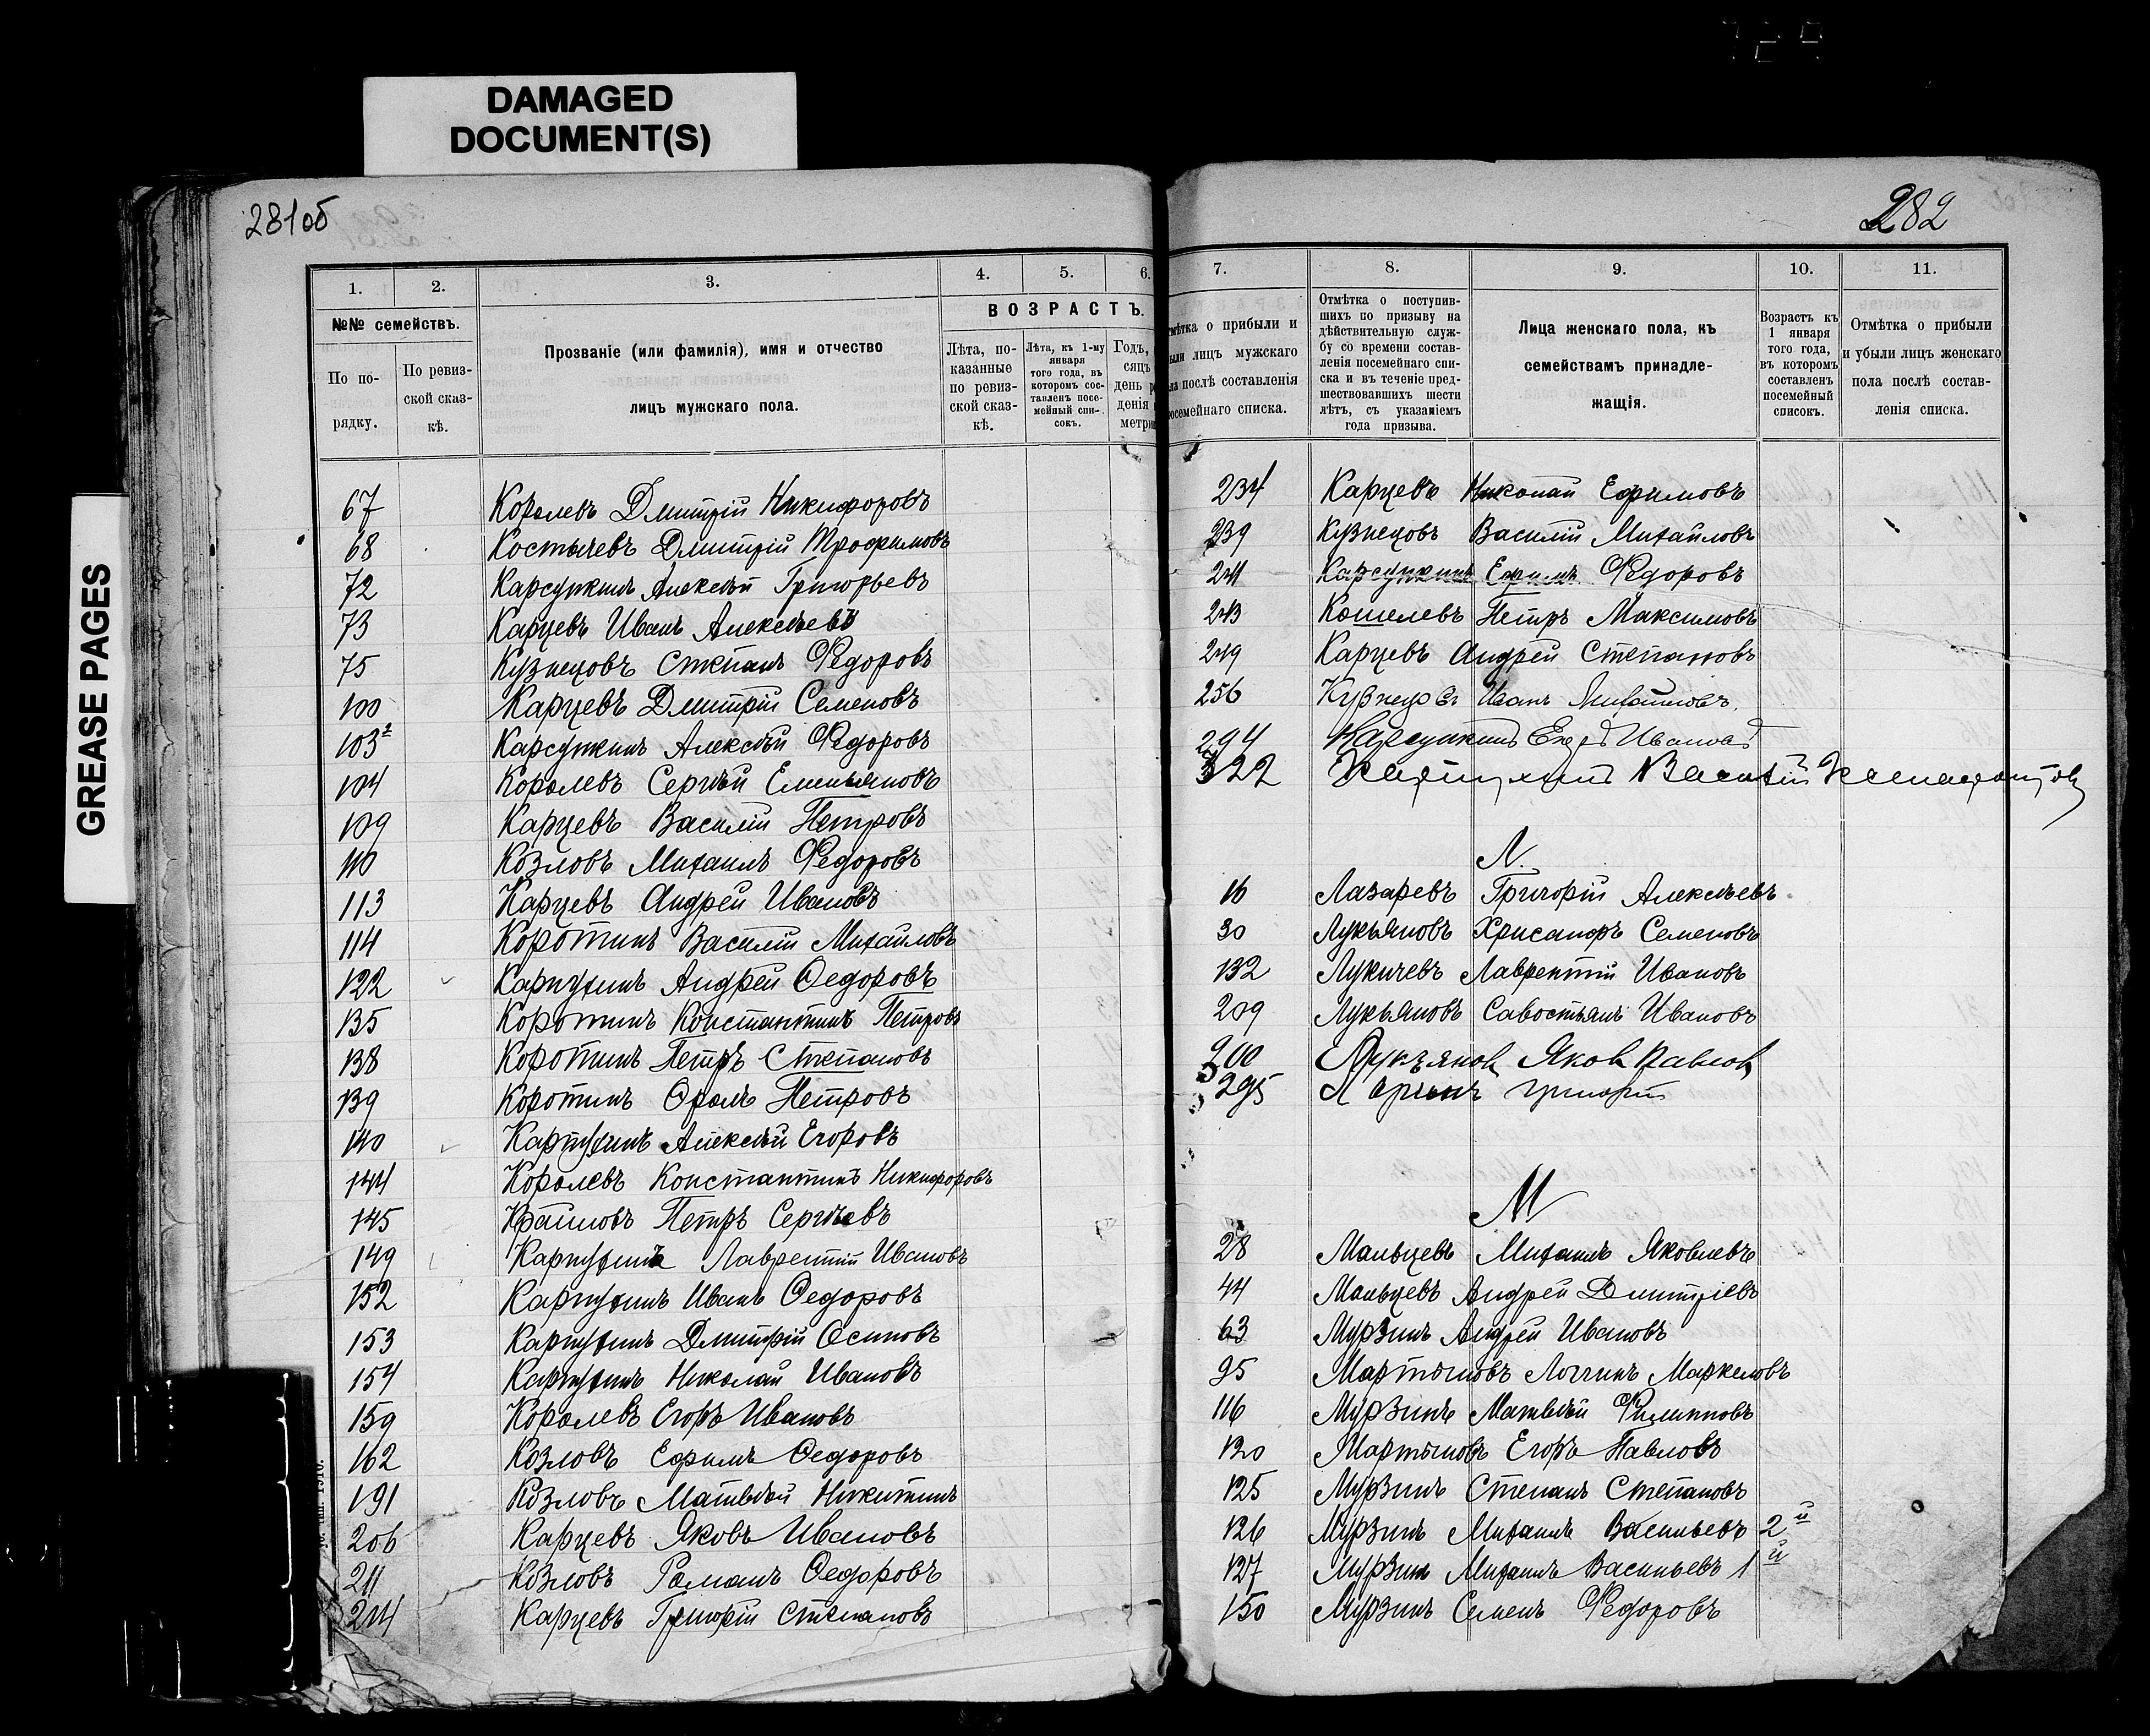 DAMAGED
DOCUMENT(S)
GREASE PAGES
281об
1. 2. 3. 4. 5. 6.
№№ семействъ.
По по-
рядку.
По ревиз-
ской сказ-
кѣ.
Прозваніе (или фамилія), имя и отчество
лицъ мужскаго пола.
ВОЗРАСТЪ.
Лѣта, по-
казанные
по ревиз-
ской сказ-
кѣ.
Лѣта, къ 1-му
января
того года, въ
которомъ сос-
тавленъ посе-
мейный спи-
сокъ.
Годъ,
сяцъ
день р
денія
метри
67 Королевъ Дмитрій Никифоровъ
68 Костычевъ Дмитрій Трофимовъ
72 Карсункинъ Алексѣй Григорьевъ
73 Карцевъ Иванъ Алексѣевъ
75 Кузнецовъ Степанъ Федоровъ
100 Карцевъ Дмитрій Семеновъ
103 Карсункинъ Алексѣй Федоровъ
104 Королевъ Сергѣй Емельяновъ
109 Карцевъ Василій Петровъ
110 Козловъ Михаилъ Федоровъ
113 Карцевъ Андрей Ивановъ
114 Коротинъ Василій Михайловъ
122 Карпухинъ Андрей Ѳедоровъ
135 Коротинъ Константинъ Петровъ
138 Коротинъ Петръ Степановъ
139 Коротинъ Петровъ
140 Карпухинъ Алексѣй Егоровъ
144 Королевъ Константинъ Никифоровъ
145 Крайновъ Петръ Сергѣевъ
149 Карпухинъ Лаврентій Ивановъ
152 Карпухинъ Иванъ Ѳедоровъ
153 Карпухинъ Дмитрій Осиповъ
154 Карпухинъ Николай Ивановъ
159 Королевъ Егоръ Ивановъ
162 Козловъ Ефимъ Ѳедоровъ
191 Козловъ Матвѣй Никитинъ
206 Карцевъ Яковъ Ивановъ
211 Козловъ Романъ Ѳедоровъ
214 Карцевъ Григорій Степановъ
282
7. 8. 9. 10. 11.
мѣтка о прибыли и
были лицъ мужскаго
ла послѣ составленія
посемейнаго списка.
Отмѣтка о поступив-
шихъ по призыву на
дѣйствительную служ-
бу со времени состав-
ленія посемейнаго спи-
ска и въ теченіе пред-
шествовавшихъ шести
лѣтъ, съ указаніемъ
года призыва.
Лица женскаго пола, къ
семействамъ принадле-
жащія.
Возрастъ къ
1 января
того года,
въ которомъ
составленъ
посемейный
списокъ.
Отмѣтка о прибыли
и убыли лицъ женскаго
пола послѣ состав-
ленія списка.
234 Карцевъ Николай Ефимовъ
239 Кузнецовъ Василій Михайловъ
241 Карсункинъ Ефимъ Федоровъ
243 Кошелевъ Петръ Максимовъ
249 Карцевъ Андрей Степановъ
256 Кузнецовъ Иванъ Михайловъ
294 Карсункинъ Егоръ Ивановъ
322 Карпухинъ Василій
Л.
16 Лазаревъ Григорій Алексѣевъ
30 Лукьяновъ Хрисанфъ Семеновъ
132 Лукичевъ Лаврентій Ивановъ
209 Лукьяновъ Савостьянъ Ивановъ
Лукъянов Яков Павлов
295 Ларинъ Григорій
М
28 Мальцевъ Михаилъ Яковлевъ
44 Мальцевъ Андрей Дмитріевъ
63 Мурзинъ Андрей Ивановъ
95 Мартыновъ Логгинъ Маркеловъ
116 Мурзинъ Матвѣй Филипповъ
120 Мартыновъ Егоръ Павловъ
125 Мурзинъ Степанъ Степановъ
126 Мурзинъ Михаилъ Васильевъ 2й
127 Мурзинъ Михаилъ Васильевъ 1й
150 Мурзинъ Семенъ Федоровъ